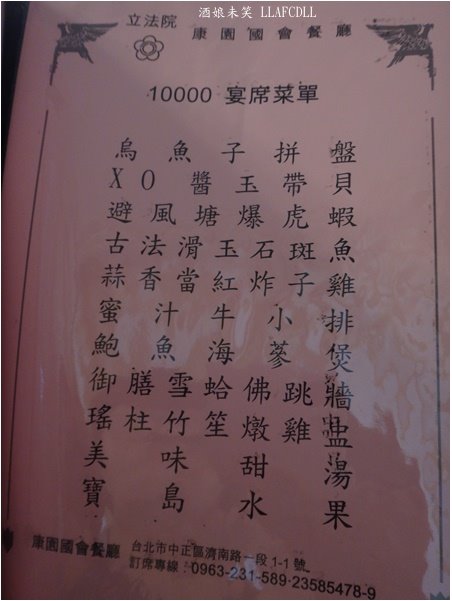 酒娘未笑 LLAFCDLL
立法院 康園國會餐廳
10000 宴席菜單
烏魚子拼盤
XO醬玉帶貝
避風塘爆虎蝦
古法滑玉石斑魚
蒜香當紅炸子雞
蜜汁牛小排
鮑魚海蔘煲
御膳雪蛤佛跳牆
瑤柱竹笙燉雞盅
美味甜湯
寶島水果
康園國會餐廳 台北市中正區濟南路一段1-1號
訂席專線：0963-231-589·23585478-9